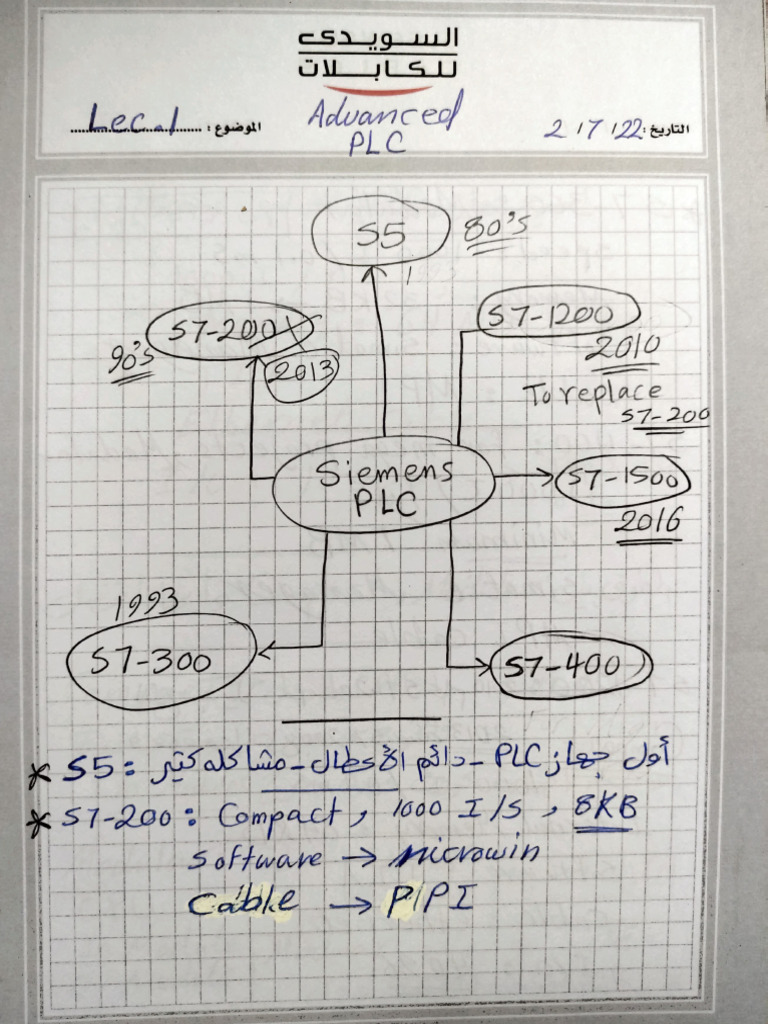 السويدى
للكابلات
التاريخ: 2/7/22
Advanced
PLC
الموضوع: Lec.1
S5
80's
S7-200
90's
2013
S7-1200
2010
To replace
S7-200
Siemens
PLC
S7-1500
2016
1993
S7-300
S7-400
* S5: أول جهاز PLC - دائم الأعطال - مشاكله كتير
* S7-200: Compact, 1000 I/S, 8KB
Software → microwin
Cable → PPI